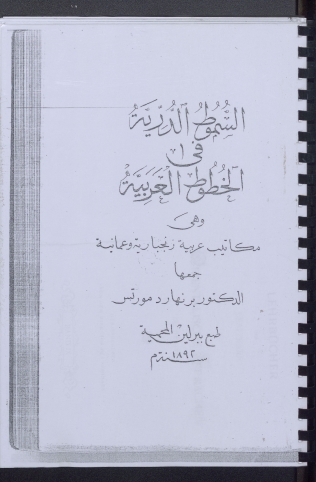 السُّمُوطُ الدُّرِّيَّةُ
فِى
الخُطُوطِ العَرَبِيَّةِ
وهى
مكاتيب عربية زنجبارية وعمانية
جمعها
الدكتور برنهارد مورتس
طبع ببرلين المحمية
سنة ١٨٩٢ م